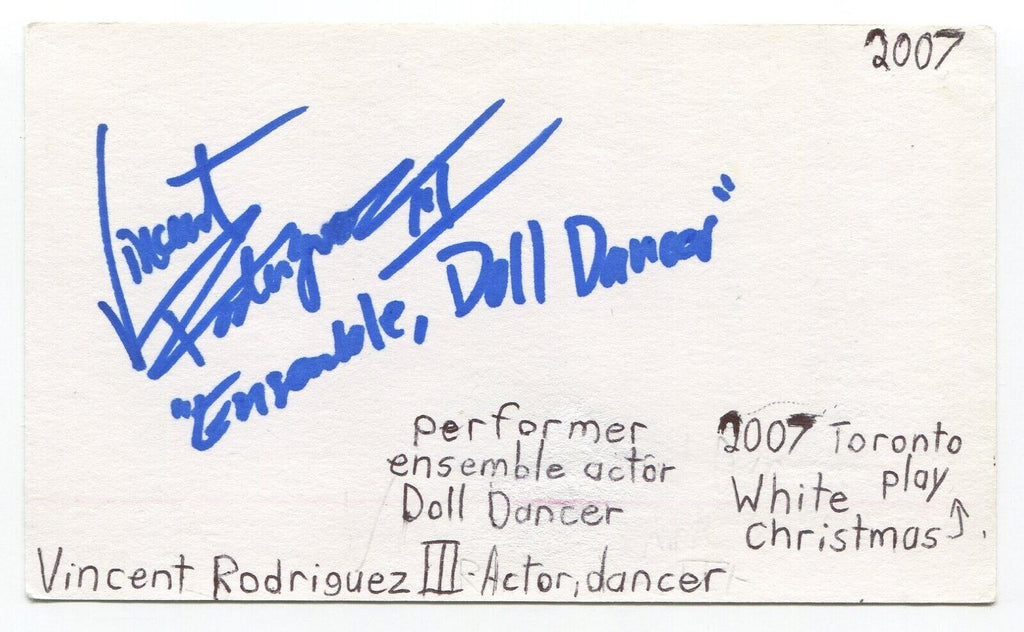 2007
Vincent
Rodriguez III
"Ensemble, Doll Dancer"
performer
ensemble actor
Doll Dancer
2007 Toronto
play
White
Christmas
Vincent Rodriguez III - Actor, dancer